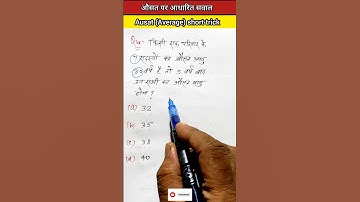 औसत पर आधारित सवाल
Ausat (Average) short trick
Qu:- किसी एक परिवार के
7 सदस्यों का औसत आयु
वर्ष है तो 5 वर्ष बाद
उन सभी का औसत आयु
होगा?
(a) 32
(b) 35
(c) 38
(d) 40